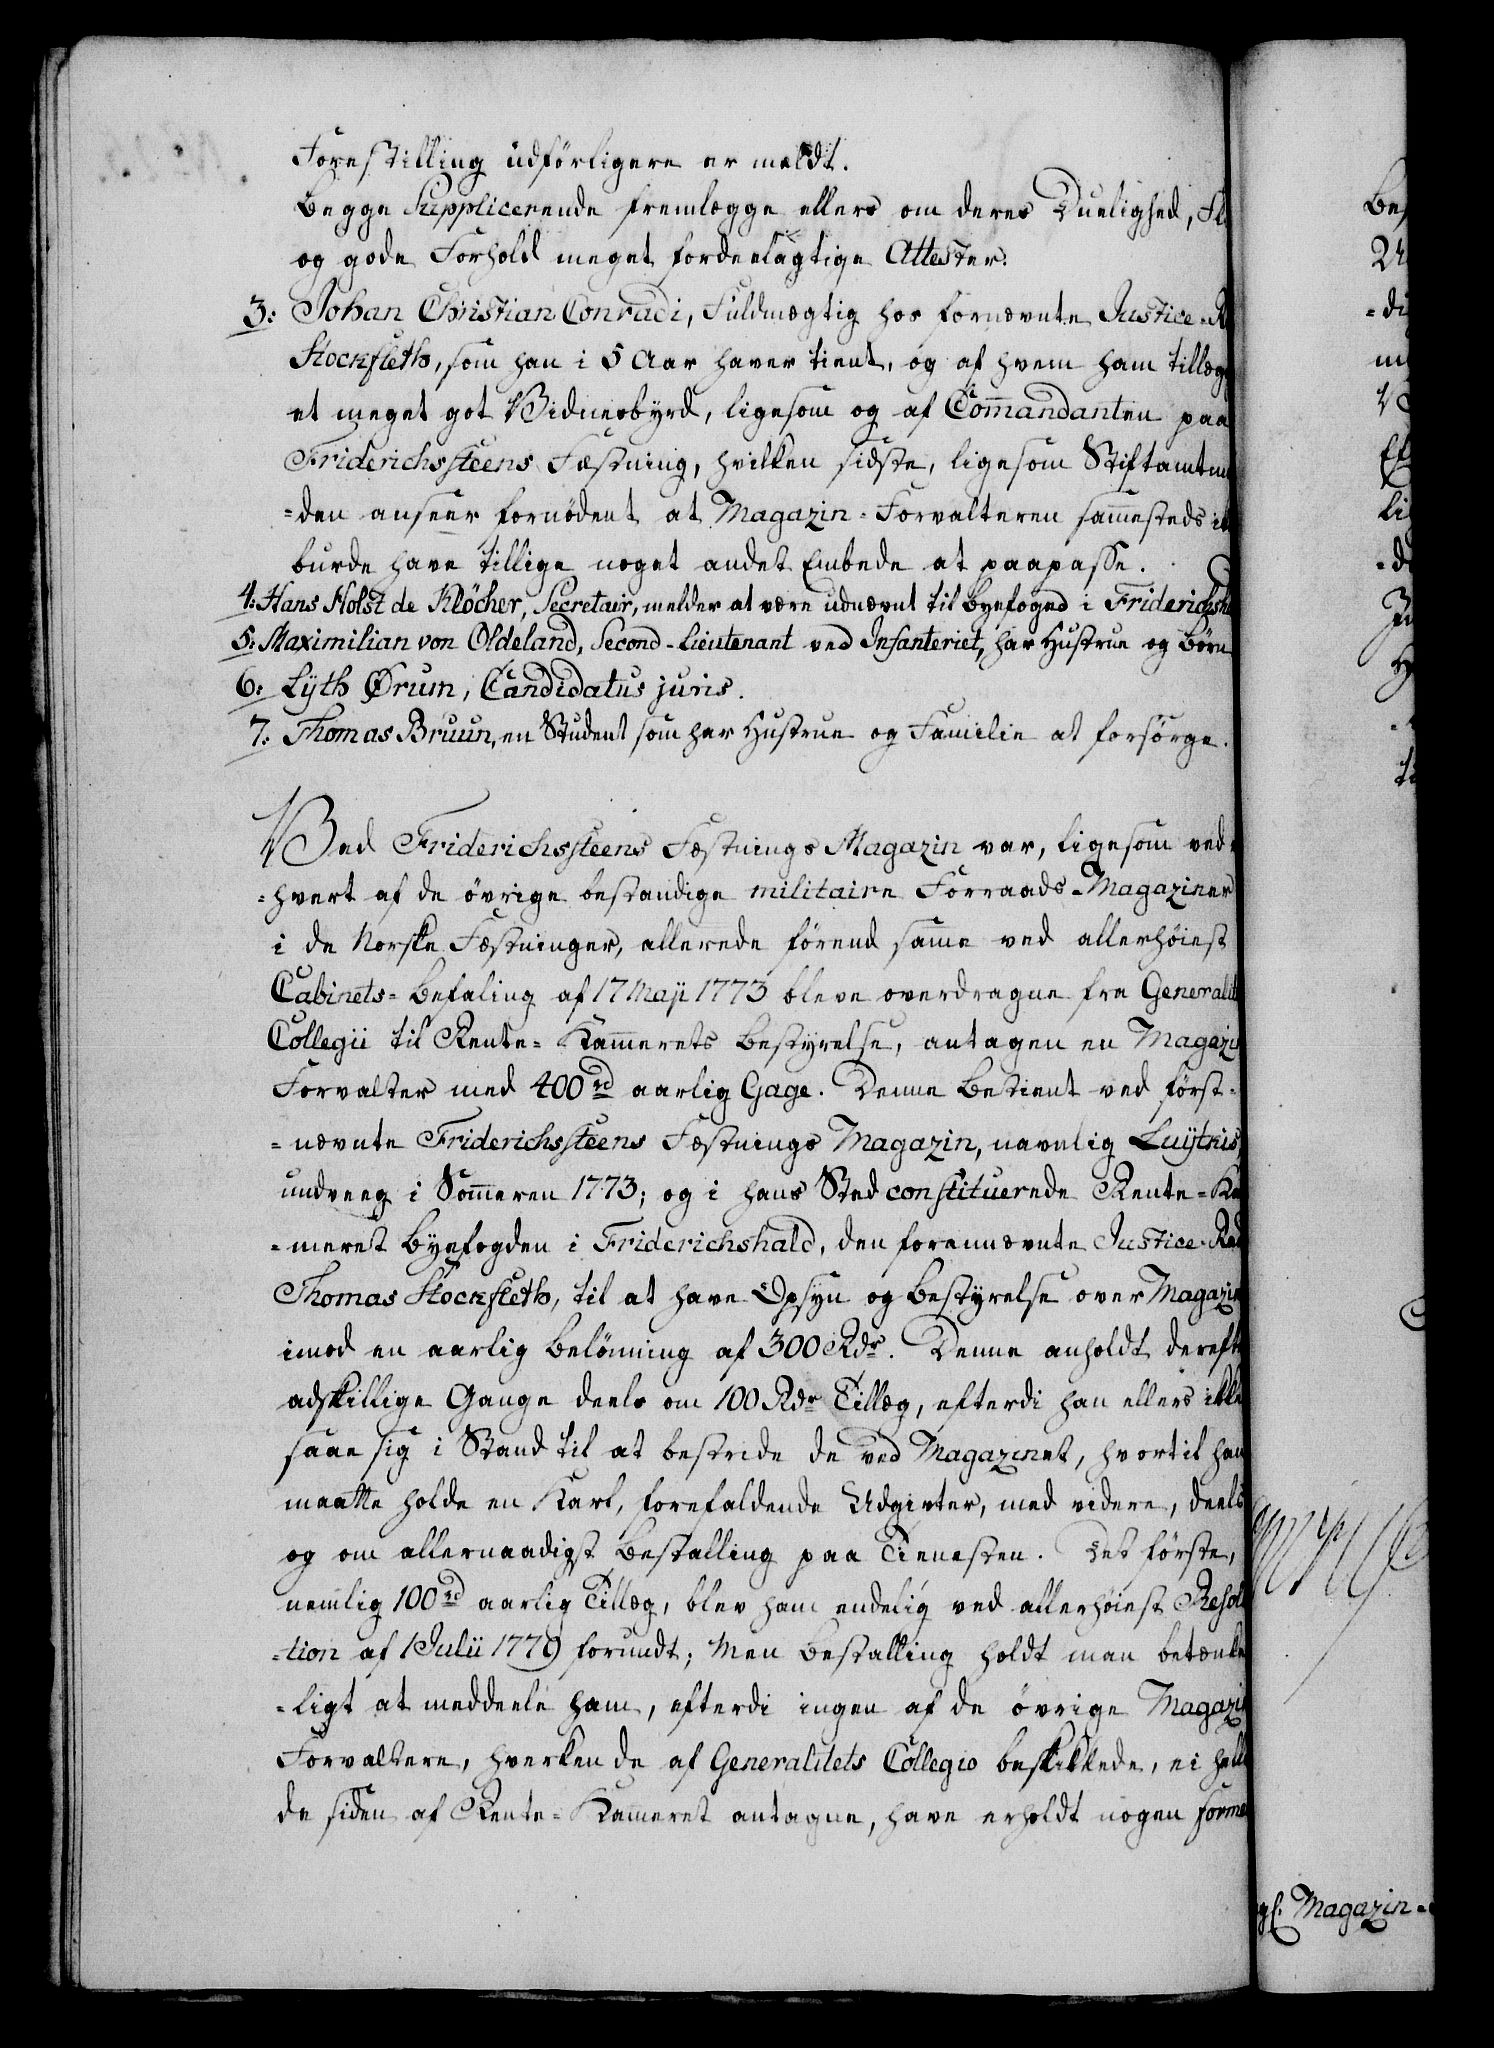 Forestilling udförligere er meldt.
Begge Supplicerende fremlægge ellers om deres Duelighed,
og gode Forhold meget fordeelagtige Attester.
3: Johan Christian Conradi, Fuldmægtig hos fornævnte Justice-R
Stockfleth, som han i 5 Aar haver tient, og af hvem ham tillæg
et meget got Vidnesbyrd, ligesom og af Com̅andanten paa
Friderichssteens Fæstning, hvilken sidste, ligesom Stiftamtm
=den anseer fornødent at Magazin-Forvalteren sam̅esteds
burde have tillige noget andet Embede at paapasse.
4: Hans Holst de Klöcher, Secretair, melder at være udnævnt til Byefoged i Friderichsh
5: Maximilian von Oldeland, Second-Lieutenant ved Infanteriet, har Hustrue og Børn
6: Lÿth Ørum, Candidatus juris.
7: Thomas Bruun, en Student som har Hustrue og Familie at forsørge.
Ved Friderichssteens Fæstnings Magazin var, ligesom ved
=hvert af de øvrige bestandige militaire Forraads-Magaziner
i de Norske Fæstninger, allerede førend sam̅e ved allerhøiest
Cabinets-Befaling af 17 Maji 1773 bleve overdragne fra Generalit
Collegii til Rente-Kam̅erets Bestyrelse, antagen en Magazin
Forvalter med 400 rd aarlig Gage. Denne Betient ved først=
=nævnte Friderichssteens Fæstnings Magazin, navnlig Luÿtkis,
undveeg i Som̅eren 1773; og i hans Sted constituerede Rente-Ka
=meret Byefogden i Friderichshald, den forennævnte Justice-Rad
Thomas Stockfleth, til at have Opsyn og Bestyrelse over Magazin
imod en aarlig Belønning af 300 Rdr. Denne anholdt derefte
adskillige Gange deels om 100 Rdr Tillæg, efterdi han ellers ikke
saae sig i Stand til at bestride de ved Magazinet, hvortil han
maatte holde en Karl, forefaldende Udgivter, med videre, deels
og om allernaadigst Bestalling paa Tienesten. Det første,
nemlig 100 rd aarlig Tillæg, blev ham endelig ved allerhøiest Resolu
=tion af 1 Julii 1779 forundt; Men Bestalling holdt man betænke
=ligt at meddeele ham, efterdi ingen af de øvrige Magazin
Forvaltere, hverken de af Generalitets Collegio beskikkede, ei hell
de siden af Rente-Kam̅eret antagne, have erholdt nogen forme
Magazin-